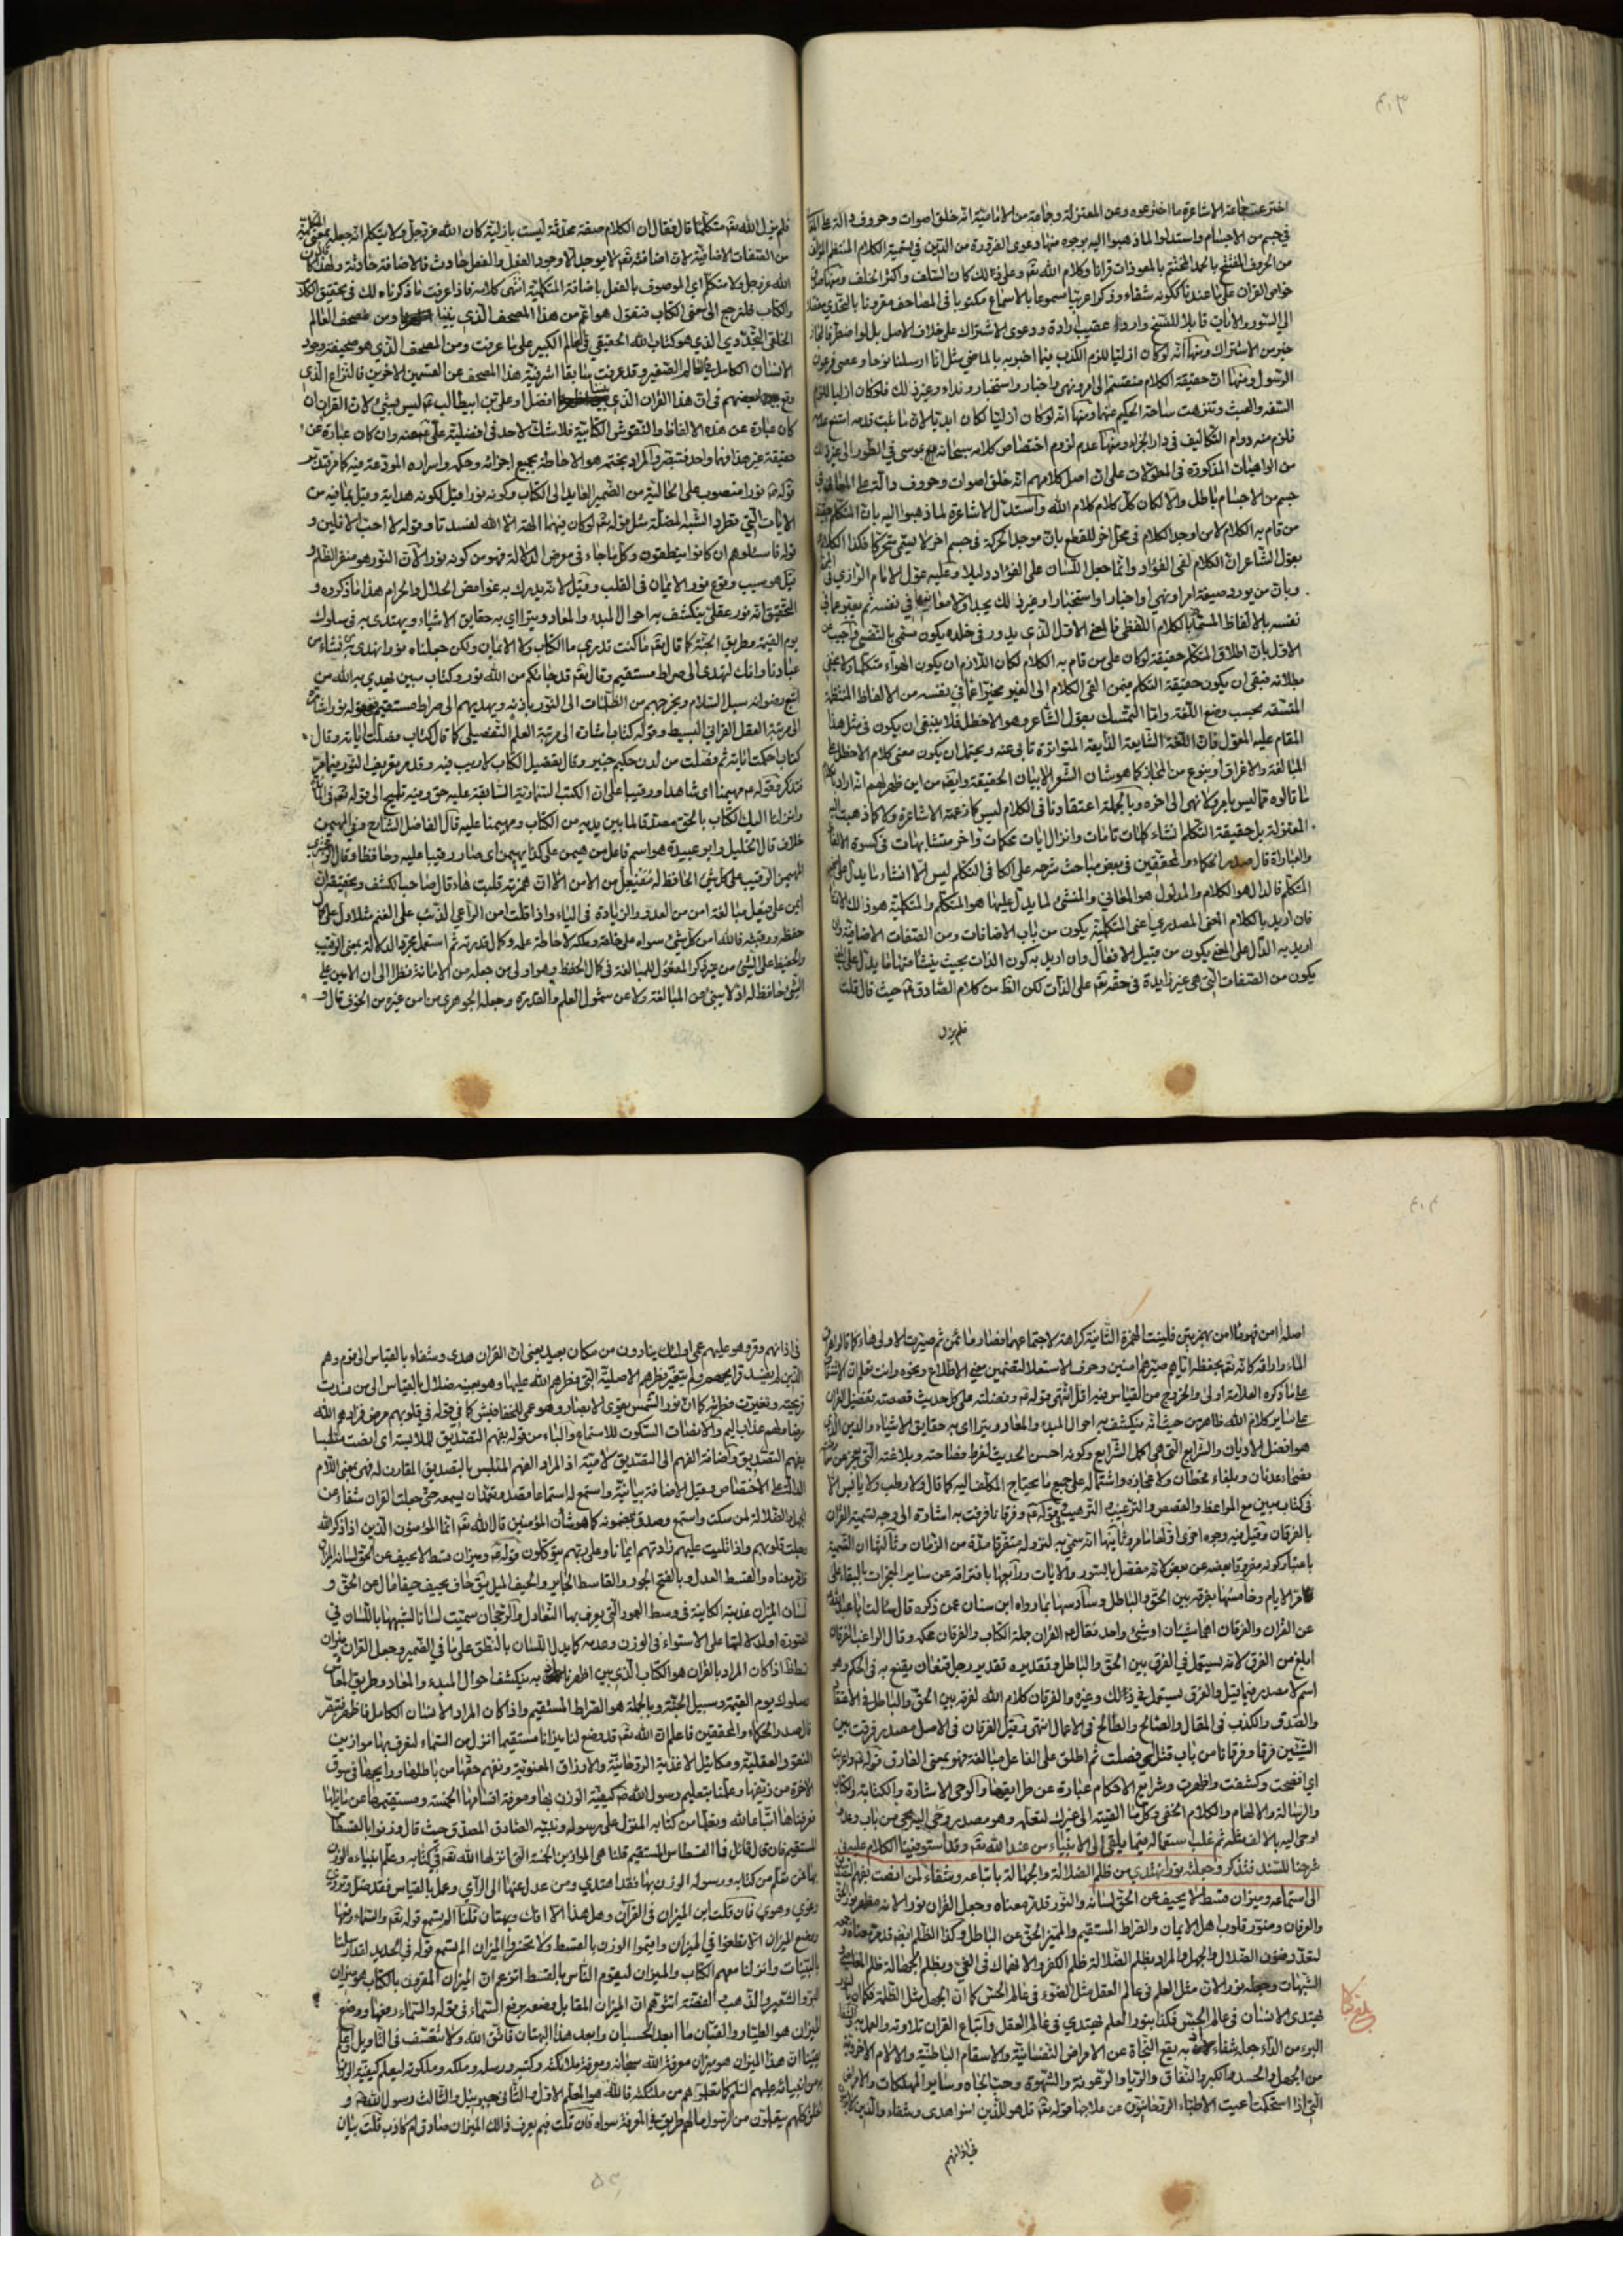 اخترعت جماعة الاشاعرة ما اخترعوه وعن المعتزلة وجماعة من الامامية انه خلق اصوات وحروف دالة على
في جسم من الاجسام واستدلوا لما ذهبوا اليه بوجوه منها دعوى الضرورة من الدين في تسمية الكلام المنتظم المؤلف
من الحروف المفتتح بالحمد المختتم بالمعوذات قرانا وكلام الله تعه وعلى ذلك كان السلف واكثر الخلف ومنها ان
خواص القران على ما عندنا ككونه شفاء وذكرا عربيا مسموعا بالاسماع مكتوبا في المصاحف مقرونا بالتحدي
الى السور والايات قابلا للنسخ واردا عقيب ارادة ودعوى الاشتراك على خلاف الاصل بل لو اضطر فالمجاز
خير من الاشتراك ومنها انه لو كان ازليا للزم الكذب فيما اخبر به بالماضي مثل انا ارسلنا نوحا وعصى فرعون
الرسول ومنها ان حقيقة الكلام منقسمة الى امر ونهي واخبار واستخبار ونداء وغير ذلك فلو كان ازليا للزم
السفه والعبث وتنزهت ساحة الحكيم عنهما ومنها انه لو كان ازليا لكان ابديا لان ما ثبت قدمه امتنع عدمه
فلزم منه دوام التكاليف في دار الجزاء ومنها عدم لزوم اختصاص كلامه سبحانه مع موسى في الطور الى غير ذلك
من الواهيات المذكورة في المطولات على ان اصل كلامهم انه خلق اصوات وحروف دالة على المعاني في
جسم من الاجسام باطل والا لكان كل كلام كلام الله واستدل الاشاعرة لما ذهبوا اليه بان المتكلم حقيقة
من قام به الكلام لا من اوجد الكلام في محل اخر للقطع بان موجد الحركة في جسم اخر لا يسمى متحركا فكذا الكلام
بقول الشاعر ان الكلام لفي الفؤاد وانما جعل اللسان على الفؤاد دليلا وعليه عول الامام الرازي في
وبان من يورد صيغة امر او نهي او اخبار او استخبار او غير ذلك يجد اولا معانيها في نفسه ثم يعبر عما في
نفسه بالالفاظ المسماة بالكلام اللفظي فالمعنى الاول الذي يدور في خلده يكون مسمى بالنفسي واجيب عن
الاول بان اطلاق المتكلم حقيقة لو كان على من قام به الكلام لكان اللازم ان يكون الهواء متكلما ولا يخفى
بطلانه فبقي ان يكون حقيقة المتكلم فيمن القى الكلام الى الغير مخبرا عما في نفسه من الالفاظ المنتظمة
المتسقة بحسب وضع اللغة واما التمسك بقول الشاعر وهو الاخطل فلا ينبغي ان يكون في مثل هذا
المقام عليه المعول فان اللغة الشايعة الذايعة المتواترة تابى عنه ويحتمل ان يكون معنى كلام الاخطل على
المبالغة والاغراق او بنوع من المجاز كما هو شان الشعر لا بيان الحقيقة وايضا من اين ظهر لهم انه اراد
ما قالوه مما ليس بامر ولا نهي الى اخره وبالجملة اعتقادنا في الكلام ليس كما زعمته الاشاعرة ولا كما ذهبت اليه
المعتزلة بل حقيقة التكلم انشاء كلمات تامات وانزال ايات محكمات واخر متشابهات في كسوة الالفاظ
والعبارات قال صدر الحكماء والمحققين في بعض مباحث شرحه على الكافي التكلم ليس الا انشاء ما يدل على
المتكلم فالدال هو الكلام والمدلول هو المعاني والمنشئ لما يدل عليها هو المتكلم والمتكلمية هو ذلك الانشاء
فان اريد بالكلام المعنى المصدري اعني المتكلمية يكون من باب الاضافات ومن الصفات الاضافية وان
اريد به الدال على المعنى يكون من قبيل الافعال وان اريد به كون الذات بحيث ينشأ منها ما يدل على المعنى
يكون من الصفات التي هي غير زايدة في حقه تعه على الذات لكن الظ من كلام الصادق ع حيث قال قلت
فلم يزل
فلم يزل الله تعه متكلما قال فقال ان الكلام صفة محدثة ليست بازلية كان الله عز وجل ولا متكلم انه جعله بمعنى المتكلمية
من الصفات الاضافية لان اضافته تعه لا يوجد الا وجود الفعل والفعل حادث فالاضافة حادثة ولهذا كان
الله عز وجل ولا متكلم اي الموصوف بالفعل باضافة المتكلمية انتهى كلامه فاذا عرفت ما ذكرناه لك في تحقيق الكلام
والكتاب فلنرجع الى معنى الكتاب فنقول هو اعم من هذا المصحف الذي بيننا ومن مصحف العالم
الخلقي التجددي الذي هو كتاب الله الحقيقي في العالم الكبير على ما عرفت ومن المصحف الذي هو صحيفة وجود
الانسان الكامل في العالم الصغير وقد عرفت سابقا اشرفية هذا المصحف عن القسمين الاخرين فالنزاع الذي
وقع بينهم في ان هذا القران الذي بيننا افضل او علي بن ابيطالب ع ليس بشئ لان القران ان
كان عبارة عن هذه الالفاظ والنقوش الكتابية فلا شك لاحد في افضلية علي ع عنه وان كان عبارة عن
حقيقة غير هذا فهما واحد فتبصر والمراد بختمه هو الاحاطة بجميع اجزائه وحكمه واسراره المودعة فيه كما مر فتدبر
قوله ع نورا منصوب على الحالية من الضمير العايد الى الكتاب وكونه نورا قيل لكونه هداية وقيل لما فيه من
الايات التي تطرد الشبه المضلة مثل قوله تعه لو كان فيهما الهة الا الله لفسدتا وقوله لا احب الافلين و
قوله فاسئلوهم ان كانوا ينطقون وكل ما جاء في معرض الدلالة فهو من كونه نورا لان النور هو منفر الظلم و
قيل هو سبب وقوع نور الايمان في القلب وقيل لانه يدرك به غوامض الحلال والحرام هذا ما ذكروه و
التحقيق انه نور عقلي ينكشف به احوال المبدء والمعاد ويترااى به حقايق الاشياء ويهتدى به في سلوك
يوم القيمة وطريق الجنة كما قال تعه ما كنت تدري ما الكتاب ولا الايمان ولكن جعلناه نورا نهدي به من نشاء من
عبادنا وانك لتهدي الى صراط مستقيم وقال تعه قد جاءكم من الله نور وكتاب مبين يهدي به الله من
اتبع رضوانه سبل السلام ويخرجهم من الظلمات الى النور باذنه ويهديهم الى صراط مستقيم فقوله نورا اشارة
الى مرتبة العقل القراني البسيط وقوله كتاب اشارة الى مرتبة العلم التفصيلي كما قال كتاب فصلت اياته وقال
كتاب احكمت اياته ثم فصلت من لدن حكيم خبير وقال تفصيل الكتاب لا ريب فيه وقد مر تعريف النور فيما مر
فتذكر وقوله ع مهيمنا اى شاهدا ورقيبا على ان الكتب السماوية السابقة عليه حق وفيه تلميح الى قوله تعه في المائدة
وانزلنا اليك الكتاب بالحق مصدقا لما بين يديه من الكتاب ومهيمنا عليه قال الفاضل الشارح وفي المهيمن
خلاف قال الخليل وابو عبيدة هو اسم فاعل من هيمن على كذا يهيمن اى صار رقيبا عليه وحافظا وقال الزمخشري
المهيمن الرقيب على كل شئ الحافظ له مفيعل من الامن الا ان همزته قلبت هاء وقال صاحب الكشف وتحقيقه ان
ايمن على فيعل مبالغة امن من العدو والزيادة في البناء واذا قلت امن الراعي الذئب على الغنم مثلا دل على كمال
حفظه ورقبته فالله امن كل شئ سواه على خلقه وملكه لاحاطة علمه وكمال قدرته ثم استعمل مجرد الدلالة بمعنى الرقيب
والحفيظ على الشئ من غير ذكر المفعول للمبالغة في كمال الحفظ وهو اولى من جعله من الامانة نظرا الى ان الامين على
الشئ حافظ له اذ لا ينبئ عن المبالغة ولا عن شمول العلم والقدرة وجعله الجوهري من امن غيره من الخوف قال و
اصله أأمن فهو مأأمن بهمزتين قلبت الهمزة الثانية كراهة لاجتماعهما فصار مايمن ثم صيرت الاولى هاء كما قالوا هراق
الماء واراقه كانه تعه بحفظه اياهم صيرهم امنين وحرف الاستعلاء لتضمين معنى الاطلاع ونحوه وانت تعلم ان الاشتقاق
على ما ذكره العلامة اولى والخروج من القياس فيه اقل انتهى قوله ع وفضلته على كل حديث قصصته تفضيل القران
على ساير كلام الله ظاهر من حيث انه ينكشف به احوال المبدء والمعاد ويترااى به حقايق الاشياء والدين الذي
هو افضل الاديان والشرايع التي هي اكمل الشرايع وكونه احسن الحديث لفرط فصاحته وبلاغته التي عجز عن
فصحاء عدنان وبلغاء قحطان ولاعجازه واشتماله على جميع ما يحتاج المكلف اليه كما قال ولا رطب ولا يابس الا
في كتاب مبين مع المواعظ والقصص والترغيب والترهيب قوله ع وفرقانا فرقت به اشارة الى وجه تسمية القران
بالفرقان وقيل فيه وجوه اخرى اولها ما مر وثانيها انه سمي به لنزوله متفرقا مدة من الزمان وثالثها ان التسمية
باعتبار كونه مفروقا بعضه عن بعض لانه مفصل بالسور والايات ورابعها بافتراقه عن ساير المعجزات بالبقاء على
مر الايام وخامسها بفرقه بين الحق والباطل وسادسها بما رواه ابن سنان عمن ذكره قال سالت ابا عبد الله
عن القران والفرقان اهما شيئان او شئ واحد فقال ع القران جملة الكتاب والفرقان محكمه وقال الراغب الفرقان
ابلغ من الفرق لانه يستعمل في الفرق بين الحق والباطل وتقديره تقدير رجل قنعان يقنع به في الحكم وهو
اسم لا مصدر فيما قيل والفرق يستعمل في ذلك وغيره والفرقان كلام الله لفرقه بين الحق والباطل في الاعتقاد
والصدق والكذب في المقال والصالح والطالح في الاعمال انتهى وقيل الفرقان في الاصل مصدر فرقت بين
الشيئين فرقا وفرقانا من باب قتل اي فصلت ثم اطلق على الفاعل مبالغة فهو بمعنى الفارق قوله ع واعربت
اي افصحت وكشفت واظهرت وشرايع الاحكام عبارة عن طرايقها والوحي الاشارة والكتابة والكتاب
والرسالة والالهام والكلام الخفي وكل ما القيته الى غيرك لتعلمه وهو مصدر وحى اليه يحي من باب وعد و
اوحى اليه بالالف مثله ثم غلب استعماله فيما يلقى الى الانبياء من عند الله تعه وقد استوفينا الكلام عليه في
شرحنا للسند فتذكر وجعلته نورا نهتدي من ظلم الضلالة والجهالة باتباعه وشفاء لمن انصت بفهم التصديق
الى استماعه وميزان قسط لا يحيف عن الحق لسانه والنور قد مر معناه وجعل القران نورا لانه مظهر نور الحق
والعرفان ومنور قلوب اهل الايمان والصراط المستقيم والمميز الحق عن الباطل وكذا الظلم ايضا قد مر معناه وجمعه
لتعدد فنون الضلال والجهل والمراد بظلم الضلالة ظلم الكفر والانهماك في الغي وبظلم الجهالة ظلم المعاصي و
الشبهات وجعله نورا لان مثل العلم في عالم العقل مثل الضوء في عالم الحس كما ان الجهل مثل الظلمة فكما ان بالنور
يهتدي الانسان في عالم الحس فكذا بنور العلم يهتدي في عالم العقل واتباع القران تلاوته والعمل به والشفاء
البرء من الداء وجعله شفاء لانه به يقع النجاة عن الامراض النفسانية والاسقام الباطنية والالام الاخروية
من الجهل والحسد والكبر والنفاق والريا والرعونة والشهوة وحب الجاه وساير المهلكات والامراض
التي اذا استحكمت اعيت الاطباء الروحانيون عن علاجها قوله تعه قل هو للذين امنوا هدى وشفاء والذين لا يؤمنون
في اذانهم
في اذانهم وقر وهو عليهم عمى اولئك ينادون من مكان بعيد يعني ان القران هدى وشفاء بالقياس الى قوم وهم
الذين لم يفسد قرايحهم ولم يتغير فطرهم الاصلية التي فطرهم الله عليها وهو بعينه ضلال بالقياس الى من فسدت
قريحته وتغيرت فطرته كما ان نور الشمس يقوي الابصار وهو عمى للخفافيش كما في قوله في قلوبهم مرض فزادهم الله
مرضا ولهم عذاب اليم والانصات السكوت للاستماع والباء من قوله بفهم التصديق للملابسة اى انصت متلبسا
بفهم التصديق واضافة الفهم الى التصديق لامية اذ المراد الفهم المتلبس بالتصديق المقارن له فهي بمعنى اللام
الدالة على الاختصاص وقيل الاضافة بيانية واستمع له استماعا قصد وتعمد ان يسمعه حتى جعلت القران شفاء من
الجهل والضلالة لمن سكت واستمع وصدق بمضمونه كما هو شأن المؤمنين قال الله تعه انما المؤمنون الذين اذا ذكر الله
وجلت قلوبهم واذا تليت عليهم اياته زادتهم ايمانا وعلى ربهم يتوكلون قوله ع وميزان قسط لا يحيف عن الحق لسانه الميزان
قد مر معناه والقسط العدل وبالفتح الجور والقاسط الجاير والحيف الميل يق حاف يحيف حيفا مال عن الحق و
لسان الميزان عذبته الكاينة في وسط العمود التي يعرف بها التعادل والرجحان سميت لسانا لشبهها باللسان في
الصورة او لدلالتها على الاستواء في الوزن وعدمه كما يدل اللسان بالنطق على ما في الضمير وجعل القران ميزان
قسط اذا كان المراد بالقران هو الكتاب الذي بين اظهرنا به ينكشف احوال المبدء والمعاد وطريق المعاش
وسلوك يوم القيمة وسبيل الجنة وبالجملة هو الصراط المستقيم واذا كان المراد الانسان الكامل فاظهر فتبصر
قال صدر الحكماء والمحققين فاعلم ان الله تعه قد وضع لنا ميزانا مستقيما انزل من السماء لنعرف بها موازين
النقود العقلية ومكائيل الاغذية الروحانية والارزاق المعنوية ونفهم حقها من باطلها ورايجها في سوق
الاخرة من زيفها وعلمنا بتعليم رسول الله ص كيفية الوزن بها ومعرفة اقسامها الخمسة ومستقيمها عن مايلها
فعرفناها اتباعا لله وتعلما من كتابه المنزل على رسوله ونبيه الصادق المصدق حيث قال وزنوا بالقسطاس
المستقيم فان قال قائل ما القسطاس المستقيم قلنا هي الموازين الخمسة التي انزلها الله تعه في كتابه وعلم انبياءه الوزن
بها فمن تعلم من كتابه ورسوله الوزن بها فقد اهتدى ومن عدل عنها الى الرأي وعمل بالقياس فقد ضل وتردى
وغوى وهوى فان قلت اين الميزان في القرآن وهل هذا الا افك وبهتان قلنا الم تسمع قوله تعه والسماء رفعها
ووضع الميزان الا تطغوا في الميزان واقيموا الوزن بالقسط ولا تخسروا الميزان الم تسمع قوله في الحديد لقد ارسلنا رسلنا
بالبينات وانزلنا معهم الكتاب والميزان ليقوم الناس بالقسط اتزعم ان الميزان المقرون بالكتاب هو ميزان
البر والشعير والذهب والفضة اتتوهم ان الميزان المقابل وضعه برفع السماء في قوله والسماء رفعها ووضع
الميزان هو الطيار والقبان ما ابعد الحسبان وابعد هذا البهتان فاتق الله ولا تتعسف في التاويل واعلم
يقينا ان هذا الميزان هو ميزان معرفة الله سبحانه ومعرفة ملائكته وكتبه ورسله وملكه وملكوته ليعلم كيفية الوزن
به من انبيائه عليهم السلم كما تعلموا هم من ملئكته فالله هو المعلم الاول والثاني جبرئيل والثالث رسول الله ص و
الخلق كلهم يتعلمون من الرسول ما لهم طريق في المعرفة سواه فان قلت فبم يعرف ذلك الميزان صادق ام كاذب قلت بيان